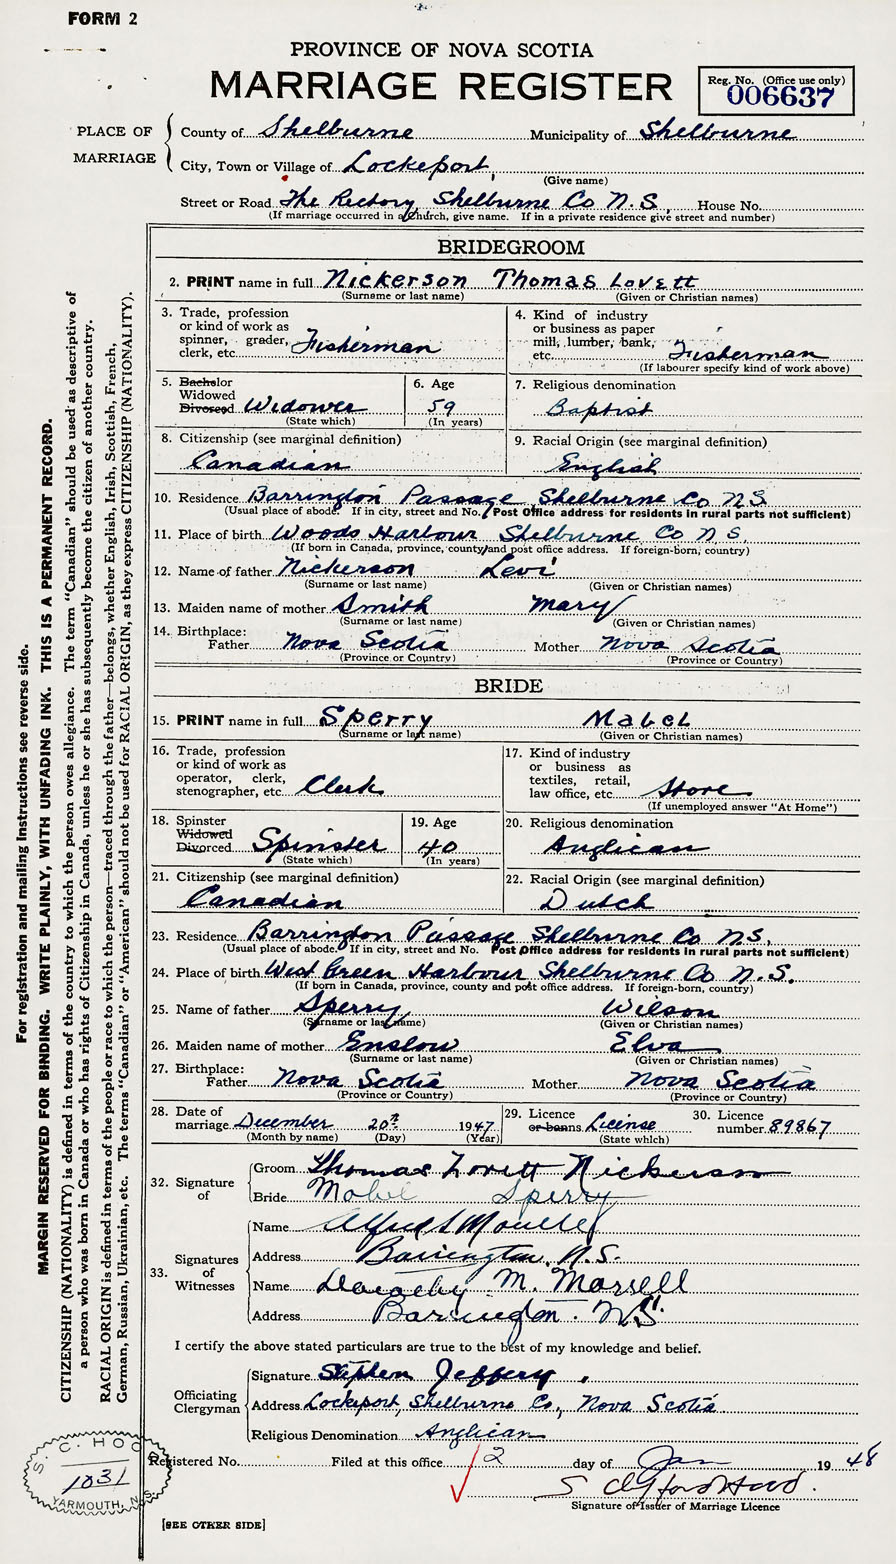 FORM 2
PROVINCE OF NOVA SCOTIA
MARRIAGE REGISTER
Reg. No. (Office use only)
006637
PLACE OF MARRIAGE
County of Shelburne Municipality of Shelburne
City, Town or Village of Lockeport,
(Give name)
Street or Road The Rectory, Shelburne Co N.S. House No.
(If marriage occurred in a church, give name. If in a private residence give street and number)
BRIDEGROOM
2. PRINT name in full Nickerson Thomas Lovett
(Surname or last name) (Given or Christian names)
3. Trade, profession or kind of work as spinner, grader, clerk, etc. Fisherman
4. Kind of industry or business as paper mill, lumber, bank, etc. Fisherman
(If labourer specify kind of work above)
5. Bachelor Widowed Divorced Widower
(State which)
6. Age 59
(In years)
7. Religious denomination
Baptist
8. Citizenship (see marginal definition)
Canadian
9. Racial Origin (see marginal definition)
English
10. Residence Barrington Passage Shelburne Co N.S
(Usual place of abode. If in city, street and No. Post Office address for residents in rural parts not sufficient)
11. Place of birth Woods Harbour Shelburne Co N S.
(If born in Canada, province, county and post office address. If foreign-born, country)
12. Name of father Nickerson Levi
(Surname or last name) (Given or Christian names)
13. Maiden name of mother Smith Mary
(Surname or last name) (Given or Christian names)
14. Birthplace:
Father Nova Scotia Mother Nova Scotia
(Province or Country) (Province or Country)
BRIDE
15. PRINT name in full Sperry Mabel
(Surname or last name) (Given or Christian names)
16. Trade, profession or kind of work as operator, clerk, stenographer, etc. Clerk
17. Kind of industry or business as textiles, retail, law office, etc. Store
(If unemployed answer "At Home")
18. Spinster Widowed Divorced Spinster
(State which)
19. Age 40
(In years)
20. Religious denomination
Anglican
21. Citizenship (see marginal definition)
Canadian
22. Racial Origin (see marginal definition)
Dutch
23. Residence Barrington Passage Shelburne Co N.S.
(Usual place of abode. If in city, street and No. Post Office address for residents in rural parts not sufficient)
24. Place of birth West Green Harbour Shelburne Co N.S.
(If born in Canada, province, county and post office address. If foreign-born, country)
25. Name of father Sperry Wilson
(Surname or last name) (Given or Christian names)
26. Maiden name of mother Enslow Elva
(Surname or last name) (Given or Christian names)
27. Birthplace:
Father Nova Scotia Mother Nova Scotia
(Province or Country) (Province or Country)
28. Date of marriage December 20th 1947
(Month by name) (Day) (Year)
29. Licence or banns License
(State which)
30. Licence number 89867
32. Signature of
Groom Thomas Lovett Nickerson
Bride Mabel Sperry
33. Signatures of Witnesses
Name Alfred S
Address Barrington N.S.
Name Dorothy M. Morrell
Address Barrington. N.S.
I certify the above stated particulars are true to the best of my knowledge and belief.
Officiating Clergyman
Signature Stephen Jeffery.
Address Lockeport, Shelburne Co., Nova Scotia
Religious Denomination Anglican
Registered No. Filed at this office 2 day of Jan 1948
S Clifford Hood
Signature of Issuer of Marriage Licence
[SEE OTHER SIDE]
S. C. HOOD
1031
YARMOUTH, N.S.
For registration and mailing instructions see reverse side.
MARGIN RESERVED FOR BINDING. WRITE PLAINLY, WITH UNFADING INK. THIS IS A PERMANENT RECORD.
CITIZENSHIP (NATIONALITY) is defined in terms of the country to which the person owes allegiance. The term "Canadian" should be used as descriptive of
a person who was born in Canada or who has rights of Citizenship in Canada, unless he or she has subsequently become the citizen of another country.
RACIAL ORIGIN is defined in terms of the people or race to which the person—traced through the father—belongs, whether English, Irish, Scottish, French,
German, Russian, Ukrainian, etc. The terms "Canadian" or "American" should not be used for RACIAL ORIGIN, as they express CITIZENSHIP (NATIONALITY).